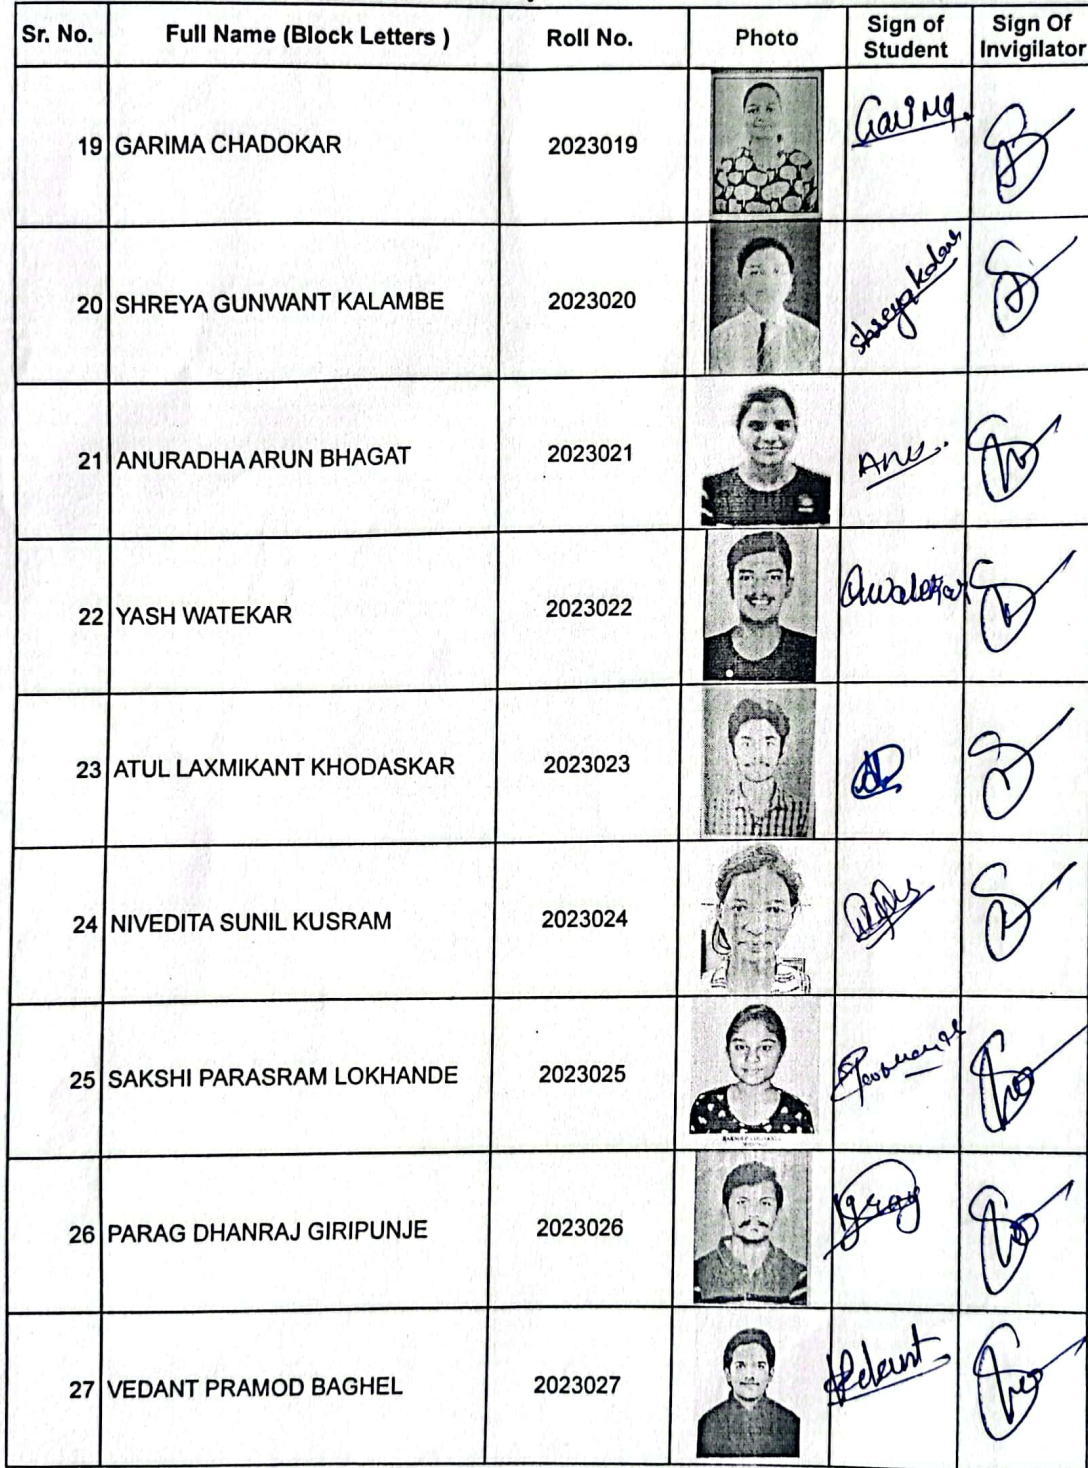 Sr. No. Full Name (Block Letters ) Roll No. Photo Sign of Student Sign Of Invigilator
19 GARIMA CHADOKAR 2023019 Garima.
20 SHREYA GUNWANT KALAMBE 2023020
21 ANURADHA ARUN BHAGAT 2023021 Anu.
22 YASH WATEKAR 2023022
23 ATUL LAXMIKANT KHODASKAR 2023023
24 NIVEDITA SUNIL KUSRAM 2023024
25 SAKSHI PARASRAM LOKHANDE 2023025
26 PARAG DHANRAJ GIRIPUNJE 2023026
27 VEDANT PRAMOD BAGHEL 2023027 Vedant